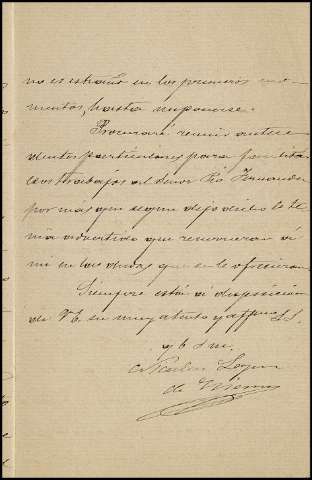 no es estraño en los primeros mo-
mentos, hasta imponerse.
Procuraré reunir antece-
dentes particulares para facilitar
los trabajos al Señor Rio Fernandez
por más que segun dejo dicho le te-
nia advertido que recurrieran á
mi en las dudas que se le ofrecieran.
Siempre está á disposición
de Vd. su muy atento y affmo S.S.
q b s m.
Nicolas
de